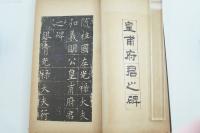 皇甫府君之碑
隋柱國左光祿大夫
弘義明公皇甫府君
之碑
銀青光祿大夫行